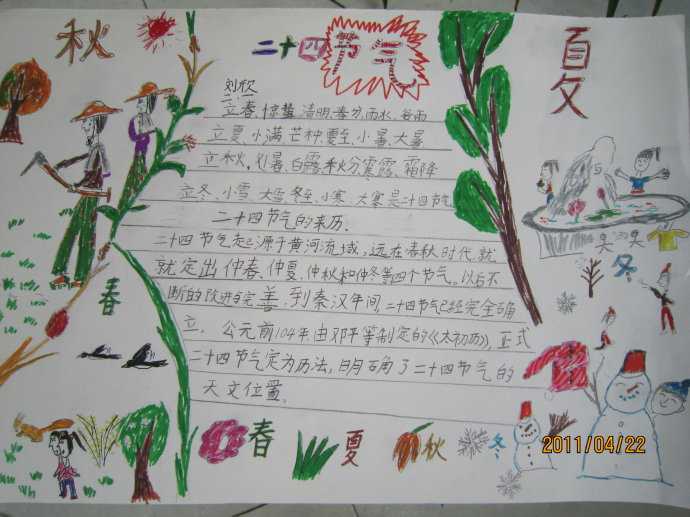 秋
二十四节气
夏
刘欣
立春、惊蛰 清明、春分、雨水、谷雨
立夏、小满 芒种、夏至、小暑、大暑
立秋、处暑、白露、秋分、寒露、霜降
立冬、小雪、大雪、冬至、小寒、大寒是二十四节气
二十四节气的来历.
二十四节气起源于黄河流域，远在春秋时代，就
就定出仲春、仲夏、仲秋和仲冬等四个节气。以后不
断的改进与完善，到秦汉年间，二十四节气已经完全确
立．公元前104年，由邓平等制定的《太初历》，正式
二十四节气定为历法，明确了二十四节气的
天文位置．
春
冬
春
夏
秋
冬
2011/04/22